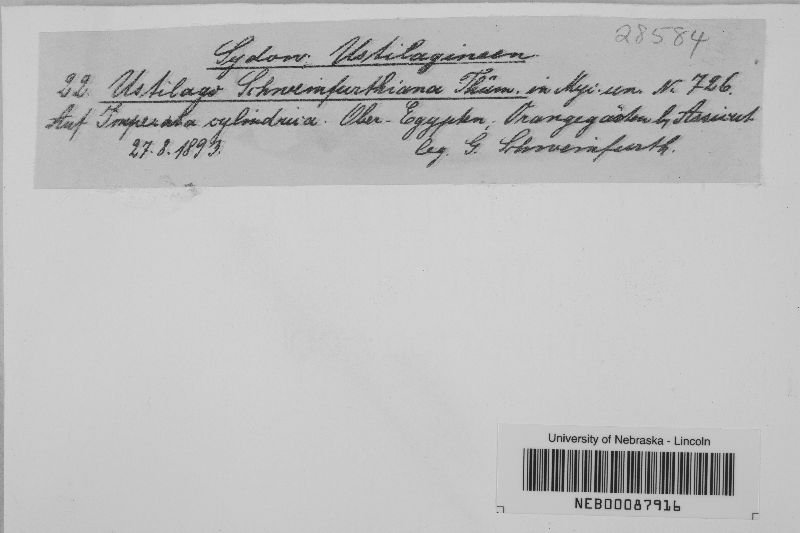 28584
Sydow. Ustilagineen
22. Ustilago Schweinfurthiana Thüm. in Myc. un. N. 726.
Auf Imperata cylindrica. Ober-Egypten, Orangegärten b, Assiut
27.8.1893. leg. G. Schweinfurth.
University of Nebraska - Lincoln
NEB00087916